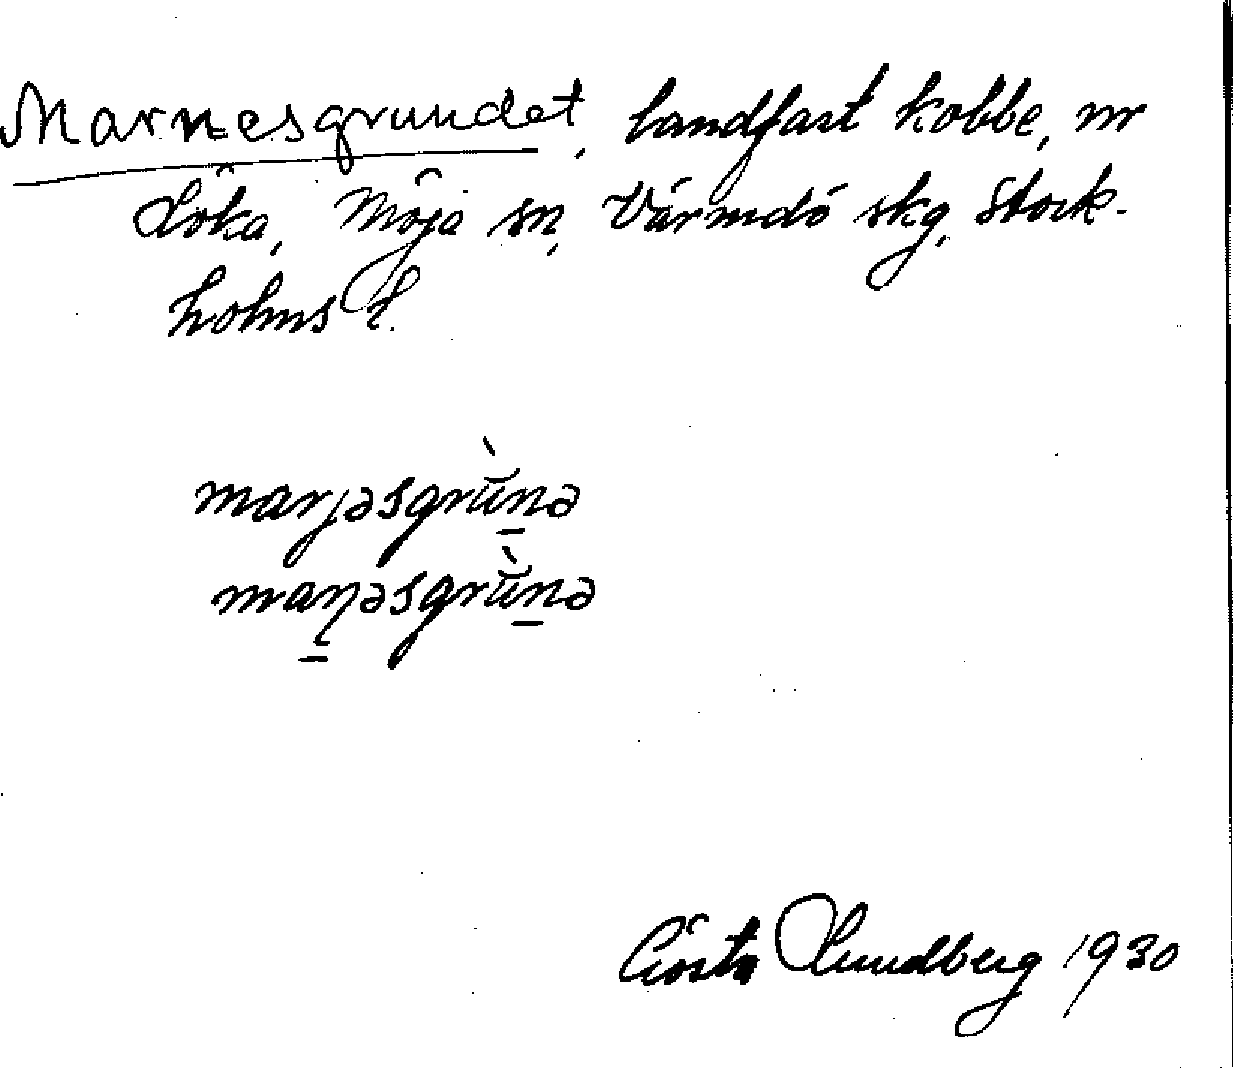 Marnesgrundet, landfast kobbe, nr
Löka, Möja sn, Värmdö skg, Stock-
holms l.
marɟəsgrŭ̀nə
maɳəsgrŭ̀nə
Gösta Lundberg 1930